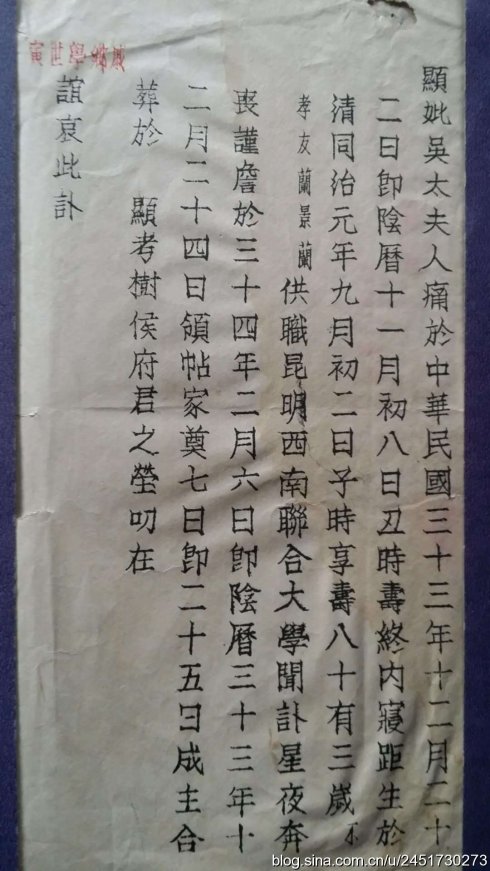 顯妣吳太夫人痛於中華民國三十三年十二月二十
二日卽陰曆十一月初八日丑時壽終內寢距生於
清同治元年九月初二日子時享壽八十有三歲不
孝友蘭景蘭供職昆明西南聯合大學聞訃星夜奔
喪謹詹於三十四年二月六日卽陰曆三十三年十
二月二十四日領帖家奠七日卽二十五日成主合
葬於 顯考樹侯府君之塋叨在
寅世學鄉戚
誼哀此訃
blog.sina.com.cn/u/2451730273